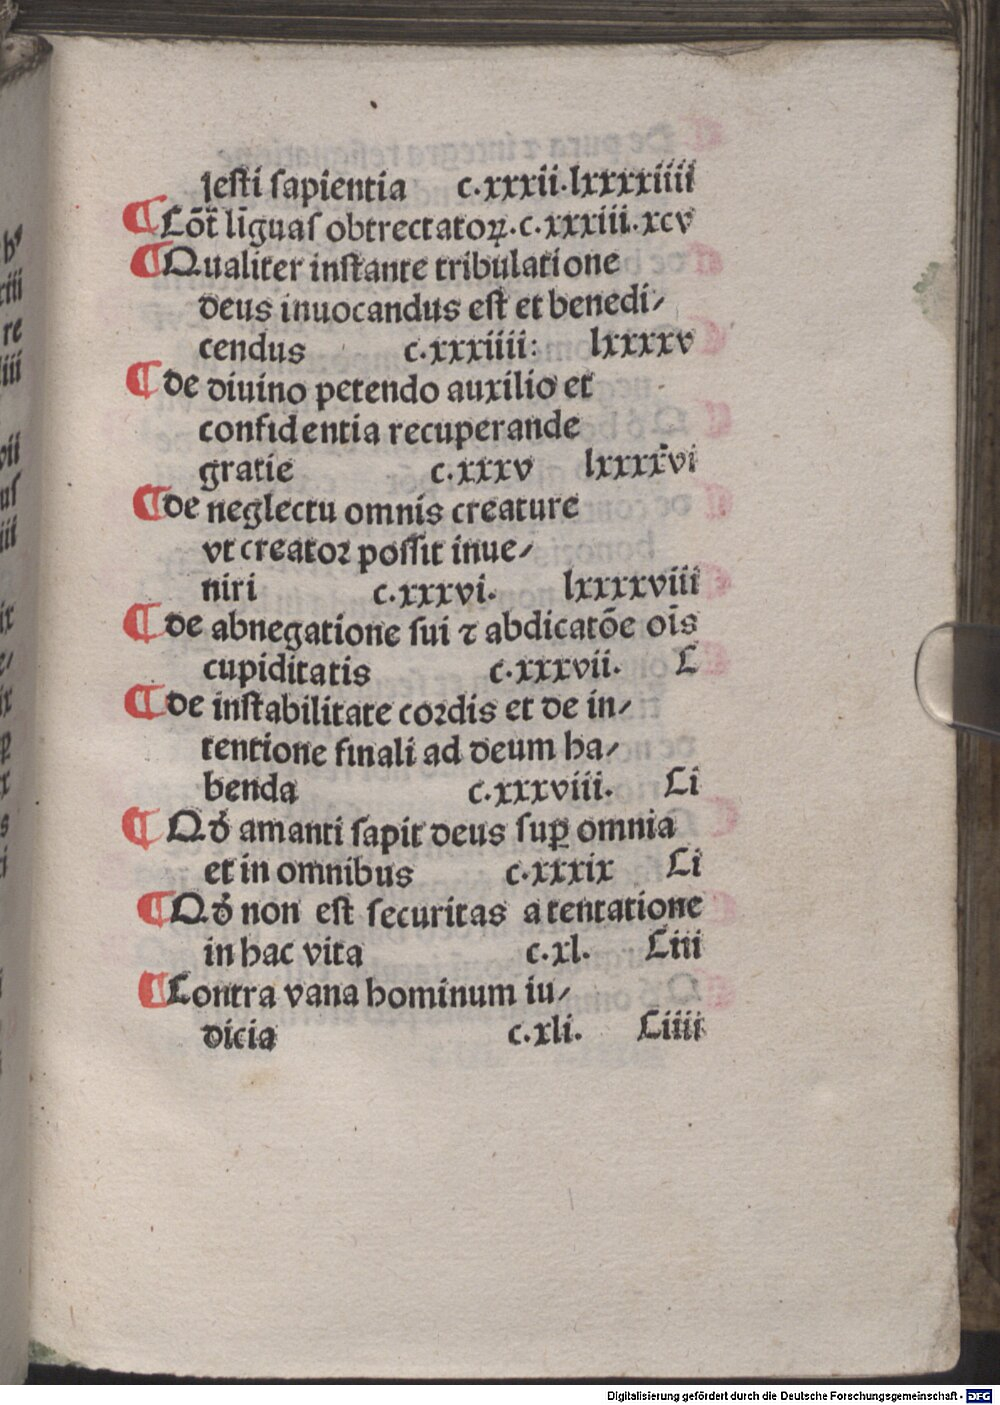 iesti sapientia c.xxxii.lxxxxiiii
¶ Cōt̄ līguas obtrectatoꝝ.c.xxxiii.xcv
¶ Qualiter instante tribulatione
deus inuocandus est et benedi⸗
cendus c.xxxiiii: lxxxxv
¶ de diuino petendo auxilio et
confidentia recuperande
gratie c.xxxv lxxxxvi
¶ de neglectu omnis creature
vt creatoꝛ possit inue⸗
niri c.xxxvi. lxxxxviii
¶ de abnegatione sui ⁊ abdicatōe oīs
cupiditatis c.xxxvii. C
¶ de instabilitate coꝛdis et de in⸗
tentione finali ad deum ha⸗
benda c.xxxviii. Ci
¶ Qđ amanti sapit deus suꝑ omnia
et in omnibus c.xxxix Ci
¶ Qđ non est securitas a tentatione
in hac vita c.xl. Ciii
¶ Contra vana hominum iu⸗
dicia c.xli. Ciiii
b⁹
xiii
re
iiii
vii
us
iii
ix
ix
x
s
i
Digitalisierung gefördert durch die Deutsche Forschungsgemeinschaft - DFG